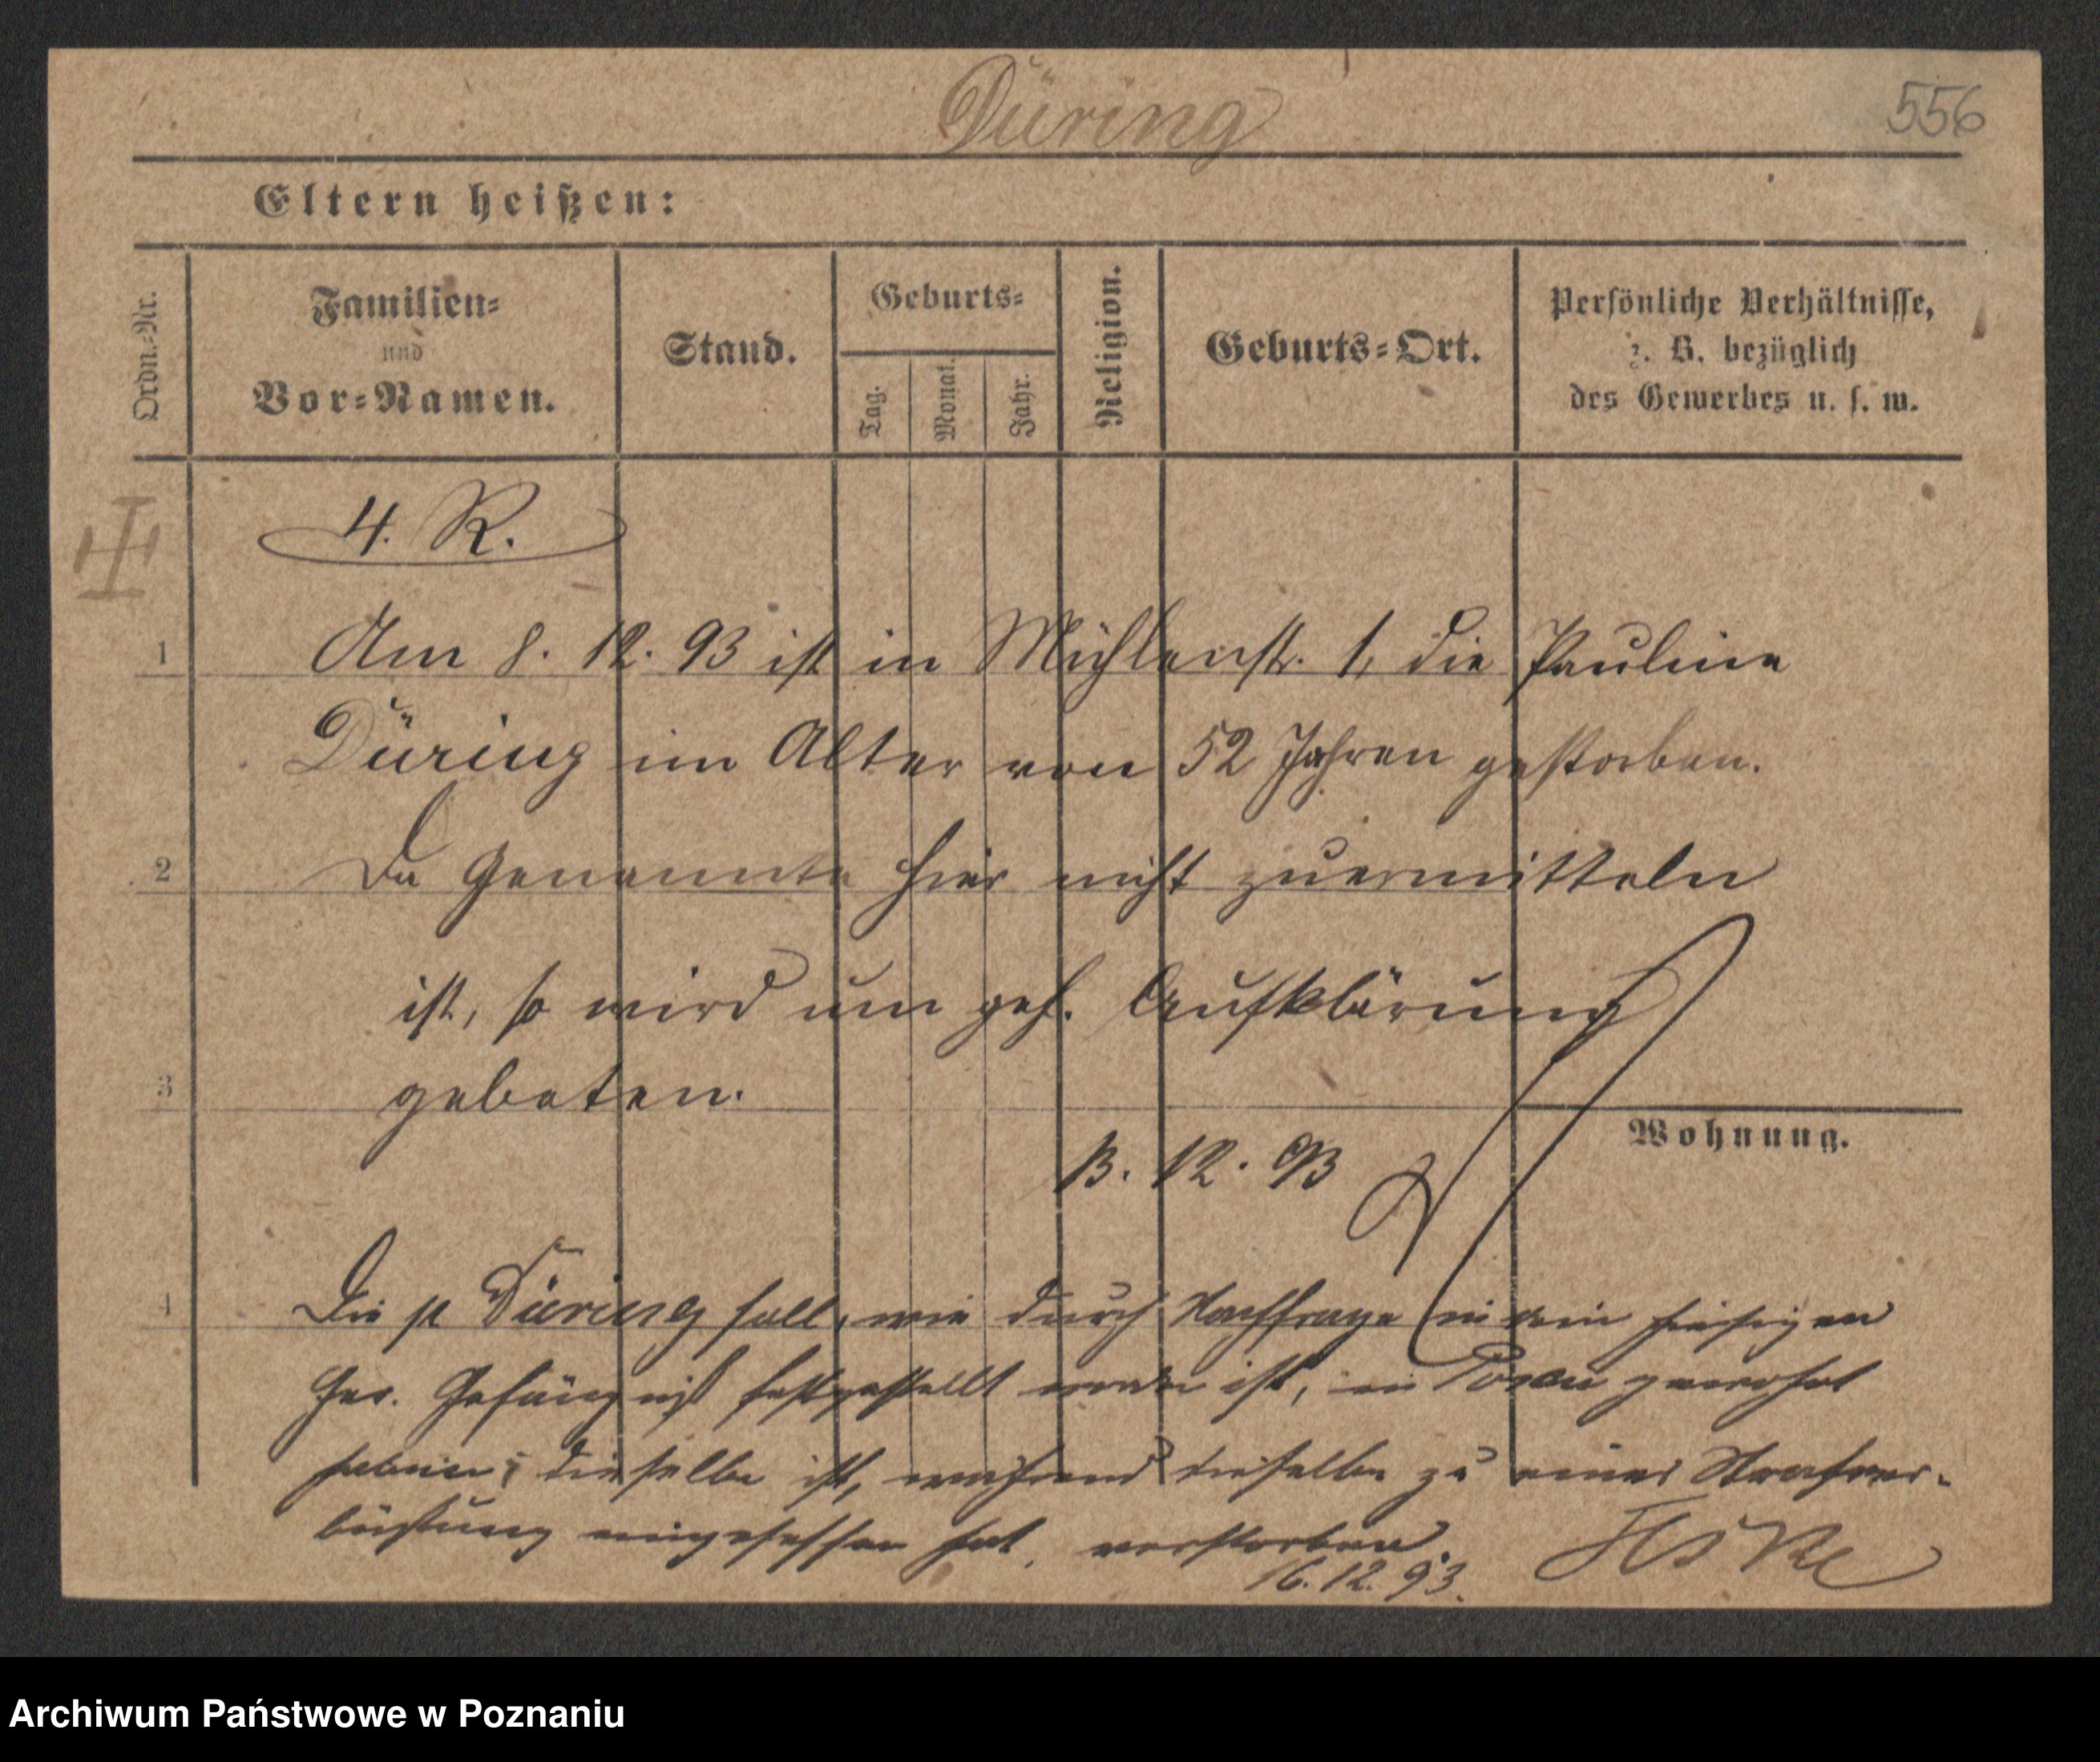 Düring
556
Eltern heißen:
Ordn.-Nr.
Familien-
und
Vor-Namen.
Stand.
Geburts-
Tag.
Monat.
Jahr.
Religion.
Geburts-Ort.
Persönliche Verhältnisse,
z. B. bezüglich
des Gewerbes u. s. w.
4. R.
1
Am 8. 12. 93 ist in Mühlenstr. 1, die Pauline
Düring im Alter von 52 Jahren gestorben.
2
Da Genannte hier nicht zuermitteln
ist, so wird um gef. Aufklärung
3
gebeten.
Wohnung.
13. 12. 93
4
Die p Düring soll, wie durch Nachfrage in hiesigen
Ger. Gefängniß festgestellt worden ist, in Posen gewohnt
haben; dieselbe ist, während dieselbe zu einer Strafver-
büßung eingesessen hat, verstorben.
16. 12. 93.
Archiwum Państwowe w Poznaniu